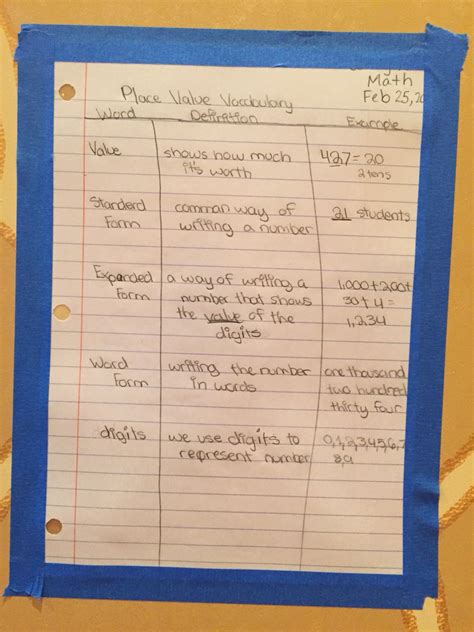 Math
Feb 25, 20
Place Value Vocabulary
Word Definition Example
Value shows how much 427 = 20
it's worth 2 tens
Standerd common way of 21 students
Form writing a number
Expanded a way of writing a 1,000+200+
Form number that shows 30+4=
the value of the 1,234
digits
Word writing the number one thousand
Form in words two hundred
thirty four
digits we use digits to 0,1,2,3,4,5,6,7
represent number 8,9